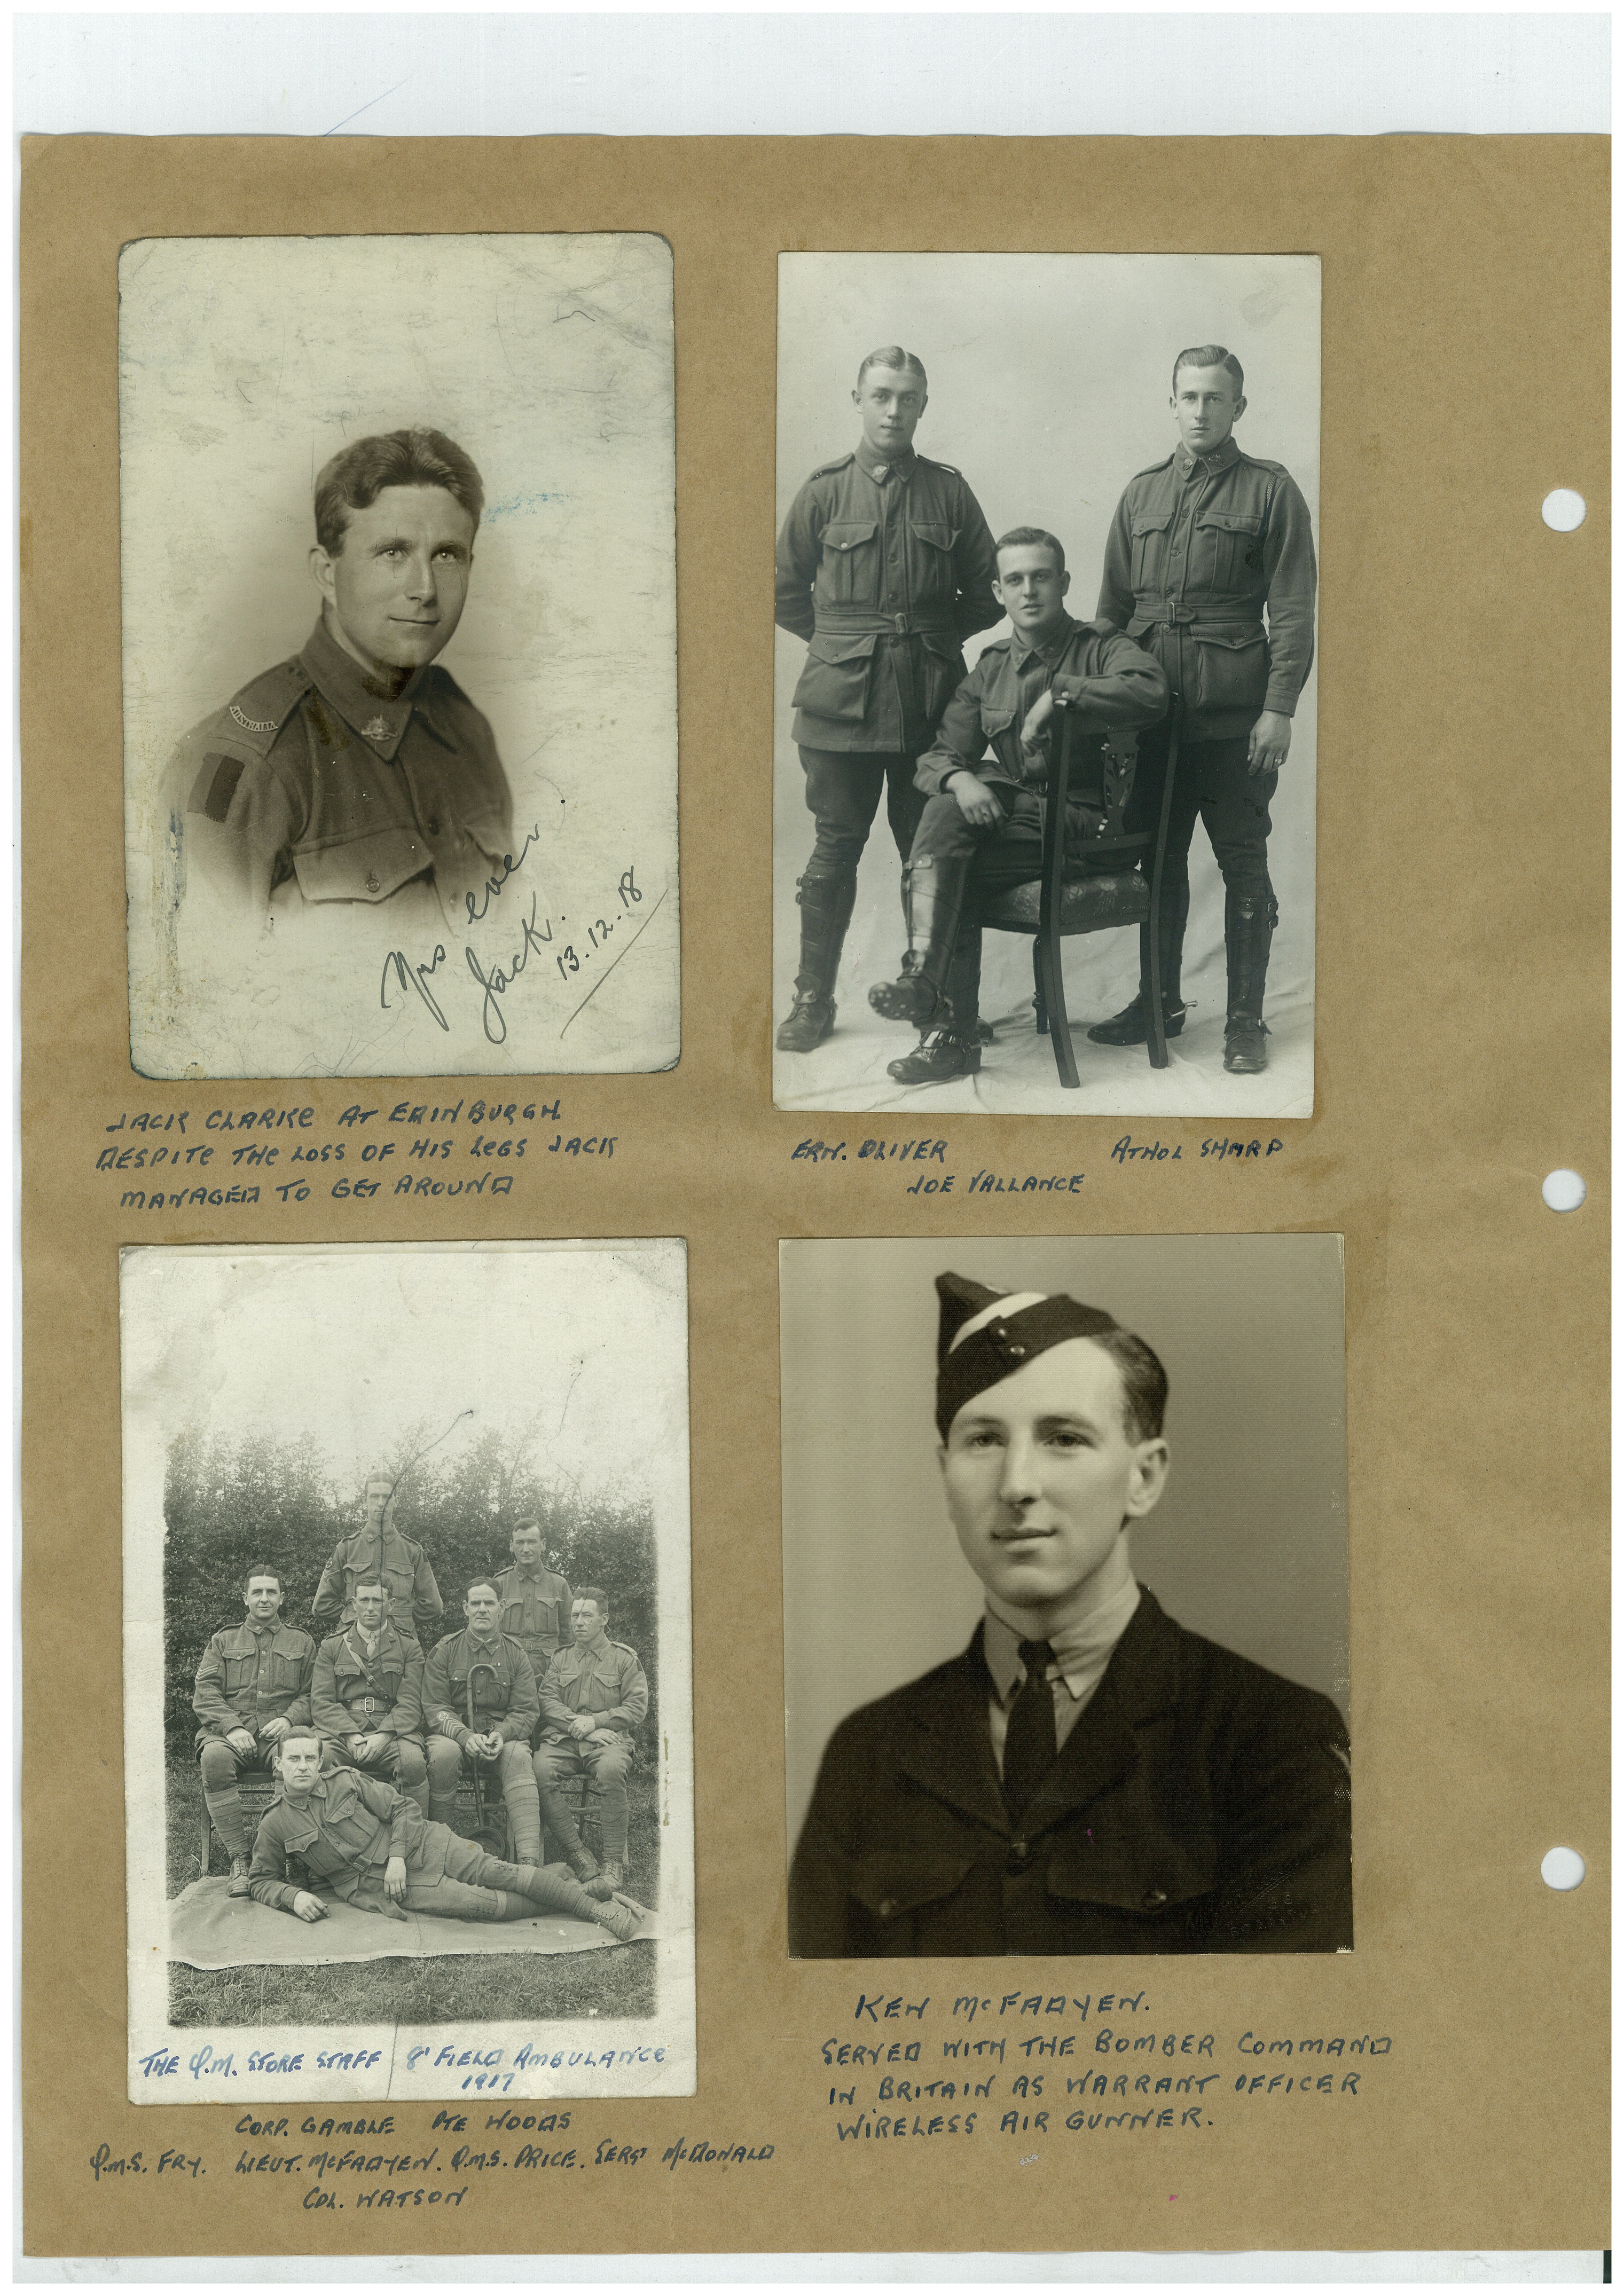 AUSTRALIA
Yrs ever
Jack.
13.12.18
JACK CLARKE AT EDINBURGH
DESPITE THE LOSS OF HIS LEGS JACK
MANAGED TO GET AROUND
ERN. OLIVER ATHOL SHARP
JOE VALLANCE
THE Q.M. STORE STAFF 8' FIELD AMBULANCE
1917
CORP. GAMBLE PTE WOODS
Q.M.S. FRY. LIEUT. McFADYEN. Q.M.S. PRICE. SERGT McDONALD
COL. WATSON
KEN McFADYEN.
SERVED WITH THE BOMBER COMMAND
IN BRITAIN AS WARRANT OFFICER
WIRELESS AIR GUNNER.